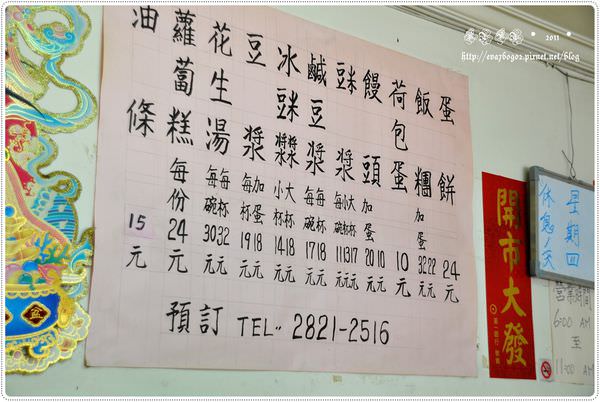 蛋餅 24元
飯糰 加蛋 3222 元元
荷包蛋 10元
饅頭 加蛋 2010 元元
豆米漿 每小大 碗杯杯 111317 元元元
鹹豆漿 每每 碗杯 1718 元元
冰豆米漿漿 小大 杯杯 1418 元元
豆漿 每加 杯蛋 1918 元元
花生湯 每每 碗杯 3032 元元
蘿蔔糕 每份 24元
油條 15元
預訂 TEL:2821-2516
開市大發
星期四
休息1天
營業時間
6:00 AM
至
11:00 AM
2011
http://evaybog02.pixnet.net/blog